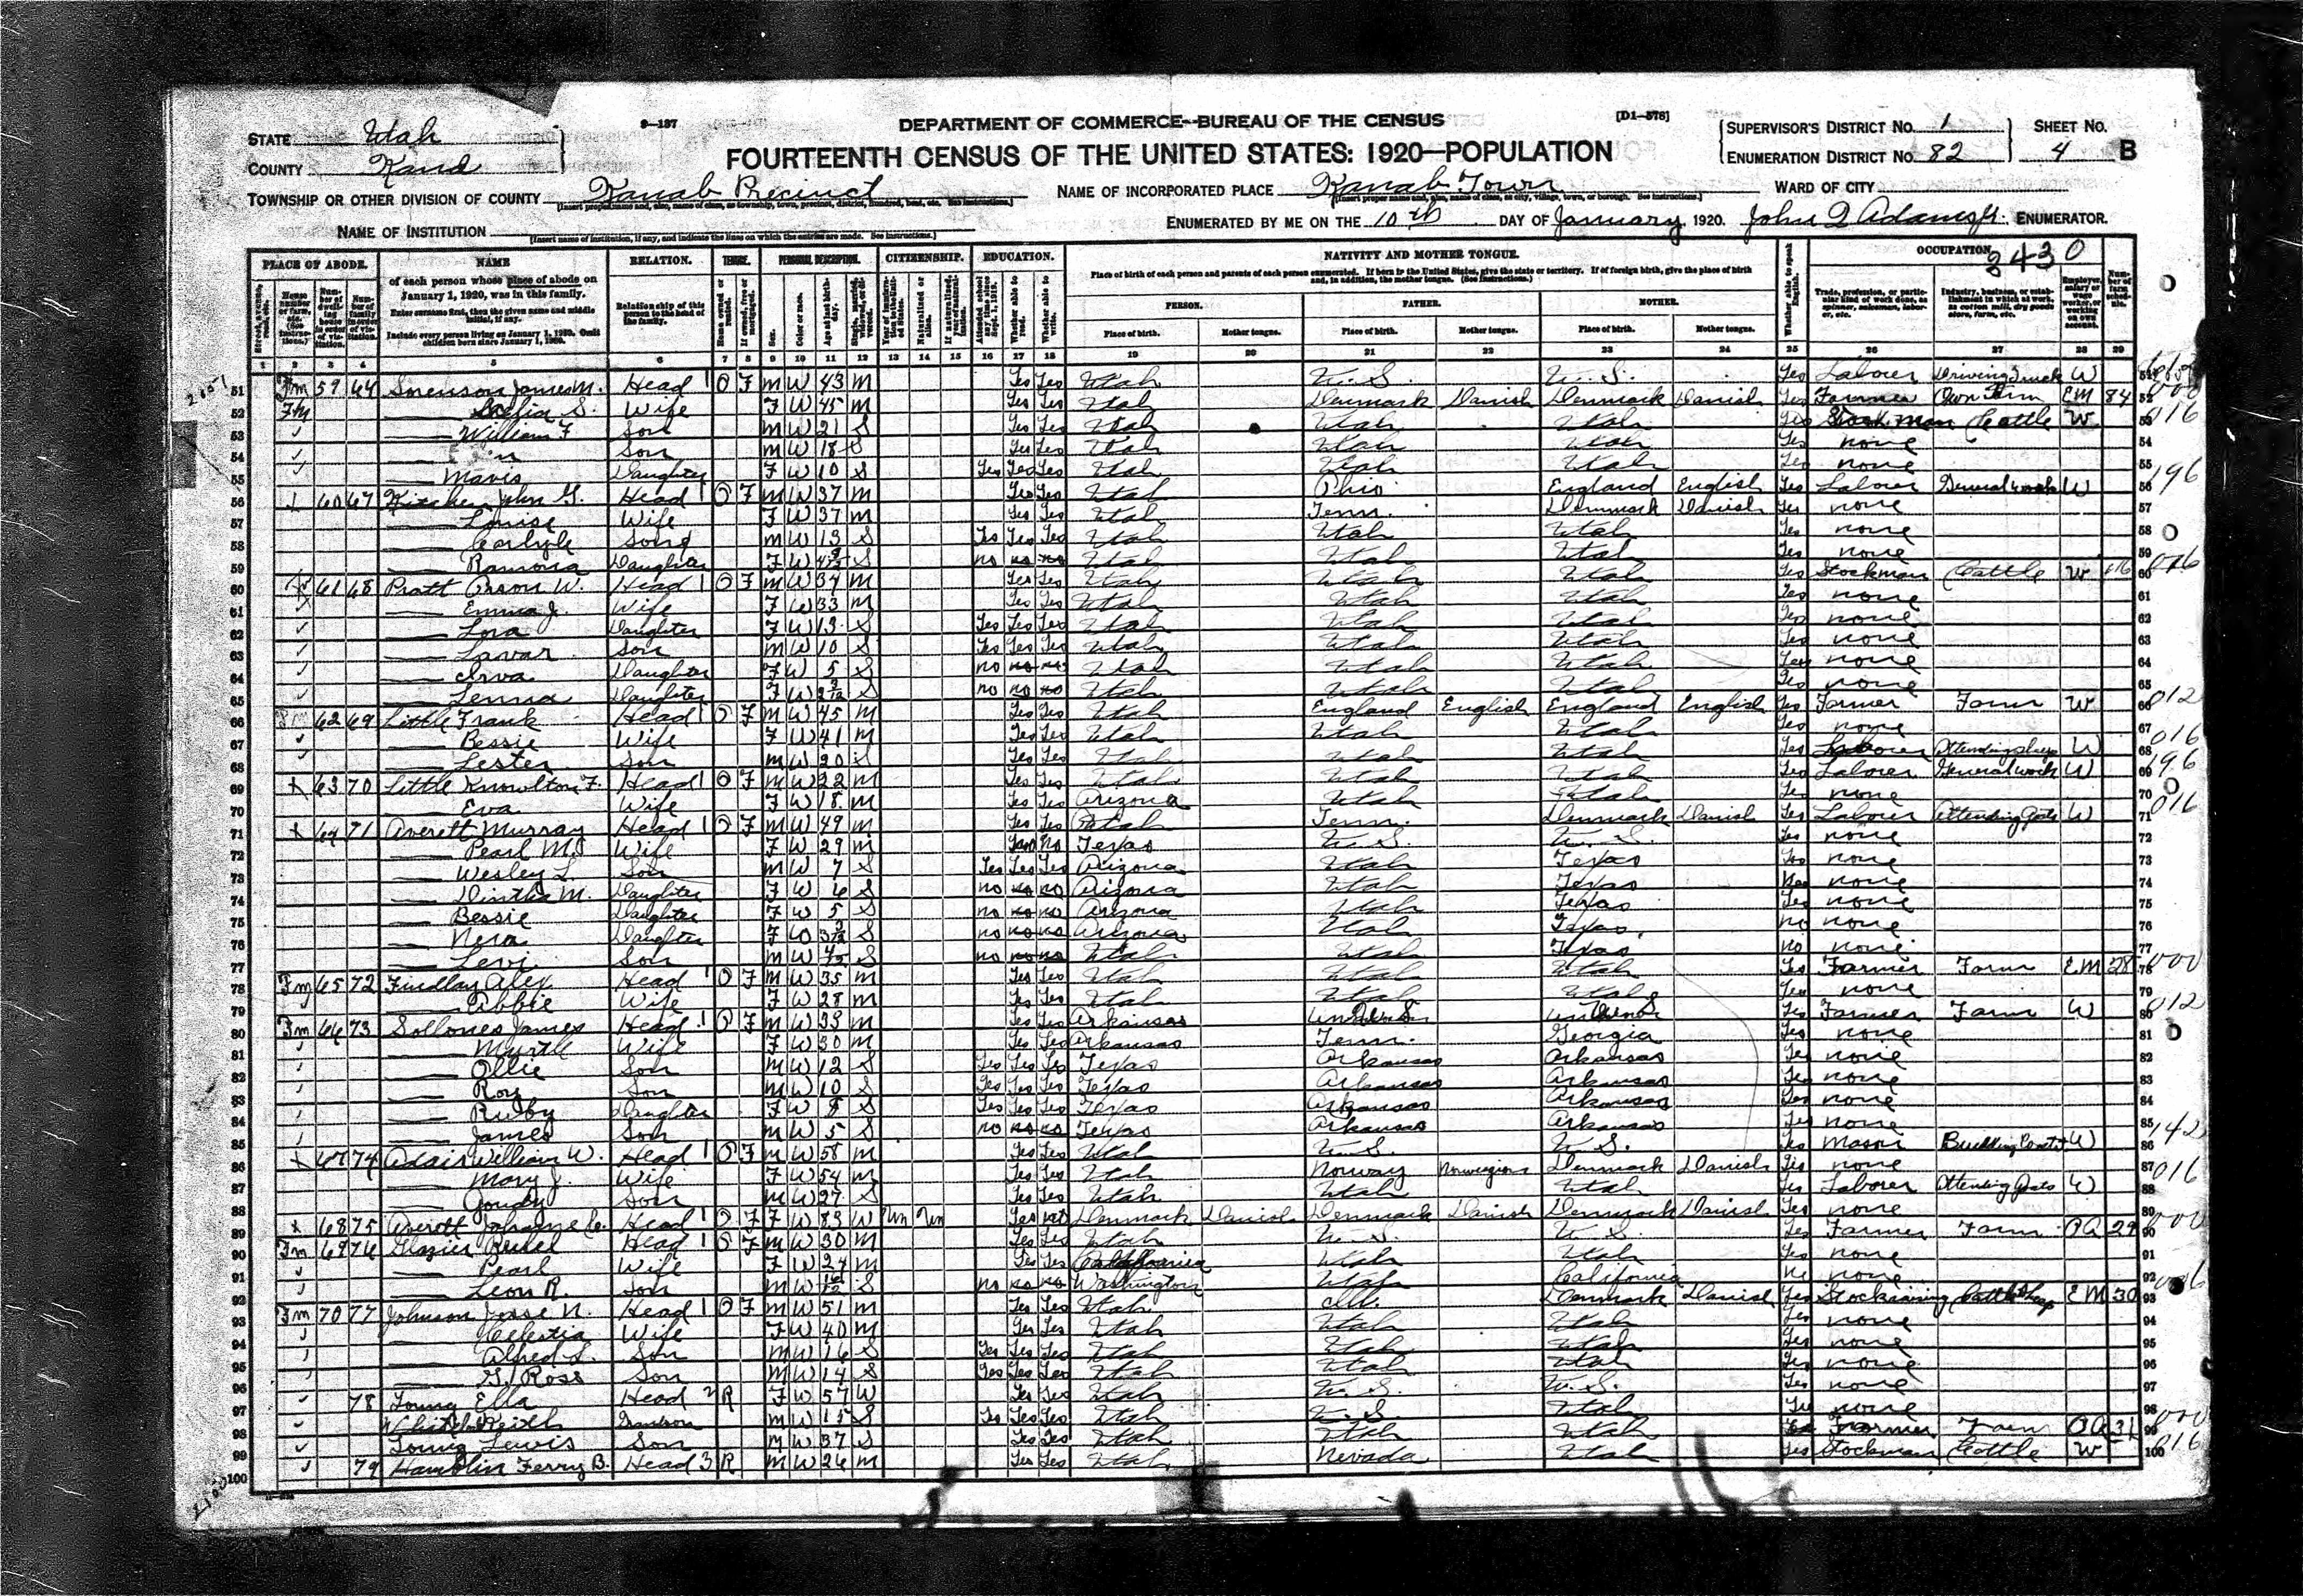 9-137
DEPARTMENT OF COMMERCE--BUREAU OF THE CENSUS
[D1-578]
STATE Utah
COUNTY Kane
FOURTEENTH CENSUS OF THE UNITED STATES: 1920—POPULATION
SUPERVISOR'S DISTRICT No. 1
ENUMERATION DISTRICT No. 82
SHEET No. 4 B
TOWNSHIP OR OTHER DIVISION OF COUNTY Kanab Precinct
NAME OF INCORPORATED PLACE Kanab Town
WARD OF CITY
NAME OF INSTITUTION
ENUMERATED BY ME ON THE 10th DAY OF January, 1920. John Q Adams Jr. ENUMERATOR.
3430
PLACE OF ABODE. NAME RELATION. TENURE. PERSONAL DESCRIPTION. CITIZENSHIP. EDUCATION. NATIVITY AND MOTHER TONGUE. OCCUPATION.
of each person whose place of abode on January 1, 1920, was in this family.
Enter surname first, then the given name and middle initial, if any.
Include every person living on January 1, 1920. Omit children born since January 1, 1920.
Relationship of this person to the head of the family.
Place of birth of each person and parents of each person enumerated. If born in the United States, give the state or territory. If of foreign birth, give the place of birth and, in addition, the mother tongue. (See Instructions.)
PERSON. FATHER. MOTHER.
Place of birth. Mother tongue. Place of birth. Mother tongue. Place of birth. Mother tongue.
1 2 3 4 5 6 7 8 9 10 11 12 13 14 15 16 17 18 19 20 21 22 23 24 25 26 27 28 29
51 Fm 59 Sorenson James M. Head 1 O F M W 43 M Yes Yes Utah U. S. U. S. Yes Laborer Driving Truck W
52 Fm S. Wife F W 45 M Yes Yes Utah Denmark Danish Denmark Danish Yes Farmer Own Farm EM 84
53 William F Son M W 21 S Yes Yes Utah Utah Utah Yes Stockman Cattle W
54 Son M W 18 S Yes Yes Utah Utah Utah Yes none
55 Mavis Daughter F W 10 S Yes Yes Yes Utah Utah Utah Yes none
56 60 67 Kitchen John G. Head 1 O F M W 37 M Yes Yes Utah Ohio England English Yes Laborer General work W
57 Louise Wife F W 37 M Yes Yes Utah Tenn. Denmark Danish Yes none
58 Carlyle Son M W 13 S Yes Yes Yes Utah Utah Utah Yes none
59 Ramona Daughter F W S no no no Utah Utah Utah Yes none
60 61 68 Pratt Orson W. Head 1 O F M W 34 M Yes Yes Utah Utah Utah Yes Stockman Cattle W
61 Emma J. Wife F W 33 M Yes Yes Utah Utah Utah Yes none
62 Lora Daughter F W 13 S Yes Yes Yes Utah Utah Utah Yes none
63 Lavar Son M W 10 S Yes Yes Yes Utah Utah Utah Yes none
64 Arva Daughter F W 5 S no no no Utah Utah Utah Yes none
65 Lenna Daughter F W S no no no Utah Utah Utah Yes none
66 Fm 62 69 Little Frank Head 1 O F M W 45 M Yes Yes Utah England English England English Yes Farmer Farm W
67 Bessie Wife F W 41 M Yes Yes Utah Utah Utah Yes none
68 Lester Son M W 20 Yes Yes Utah Utah Utah Yes Laborer Attending sheep W
69 63 70 Little Knowlton F. Head 1 O F M W 22 M Yes Yes Utah Utah Utah Yes Laborer General work W
70 Eva Wife F W 18 M Yes Yes Arizona Utah Utah Yes none
71 64 71 Averett Murray Head 1 O F M W 49 M Yes Yes Utah Tenn. Denmark Danish Yes Laborer Attending Goats W
72 Pearl M. Wife F W 29 M no Texas U. S. U. S. Yes none
73 Wesley L. Son M W 7 S Yes Yes Yes Arizona Utah Texas Yes none
74 M. Daughter F W 6 S no no no Arizona Utah Texas Yes none
75 Bessie Daughter F W 5 S no no no Arizona Utah Texas Yes none
76 Nera Daughter F W S no no no Arizona Utah Texas no none
77 Levi Son M W S no no no Utah Utah Texas no none
78 Fm 65 72 Findlay Alex Head 1 O F M W 35 M Yes Yes Utah Utah Utah Yes Farmer Farm EM 28
79 Abbie Wife F W 28 M Yes Yes Utah Utah Utah Yes none
80 Fm 66 73 James Head 1 O F M W M Yes Yes Arkansas Yes Farmer Farm W
81 Myrtle Wife F W 30 M Yes Yes Arkansas Tenn. Georgia Yes none
82 Ollie Son M W 12 S Yes Yes Yes Texas Arkansas Arkansas Yes none
83 Roy Son M W 10 S Yes Yes Yes Texas Arkansas Arkansas Yes none
84 Ruby Daughter F W 8 S Yes Yes Yes Texas Arkansas Arkansas Yes none
85 James Son M W 5 S no no no Texas Arkansas Arkansas Yes none
86 67 74 Adair William W. Head 1 O F M W 58 M Yes Yes Utah U. S. U. S. Yes Mason Building W
87 Mary J. Wife F W 54 M Yes Yes Utah Norway Norwegian Denmark Danish Yes none
88 Son M W 27 S Yes Yes Utah Utah Utah Yes Laborer Attending Goats W
89 68 75 Averett Head 1 O F F W 83 W Un Un Yes Denmark Danish Denmark Danish Denmark Danish Yes none
90 Fm 69 76 Glazier Head 1 O F M W 30 M Yes Yes Utah U. S. U. S. Yes Farmer Farm OA 29
91 Pearl Wife F W 24 M Yes Yes California Utah Utah Yes none
92 Leon R. Son M W S no no no Washington Utah California no none
93 Fm 70 77 Johnson Jesse N. Head 1 O F M W 51 M Yes Yes Utah Denmark Danish Yes Stockraising EM 30
94 Celestia Wife F W 40 M Yes Yes Utah Utah Utah Yes none
95 Alfred L. Son M W 16 S Yes Yes Yes Utah Utah Utah Yes none
96 G. Ross Son M W 14 S Yes Yes Yes Utah Utah Utah Yes none
97 78 Young Ella Head 2 R F W 57 W Yes Yes Utah U. S. U. S. Yes none
98 Keith Grandson M W 15 S Yes Yes Yes Utah U. S. Utah Yes none
99 Young Lewis Son M W 37 S Yes Yes Utah Utah Utah Farmer Farm OA 31
100 79 Hamblin Ferry B. Head 3 R M W 26 M Yes Yes Utah Nevada Utah Yes Stockman Cattle W